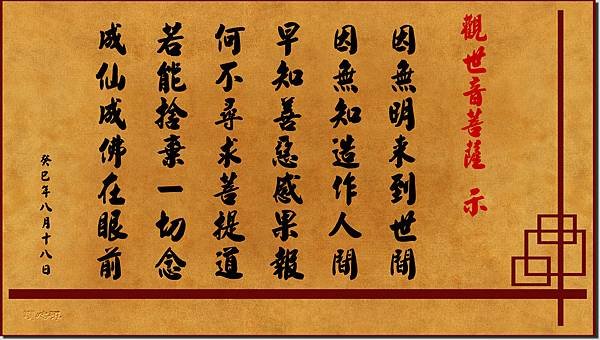 觀世音菩薩 示
因無明來到世間
因無知造作人間
早知善惡感果報
何不尋求菩提道
若能捨棄一切念
成仙成佛在眼前
癸巳年八月十八日